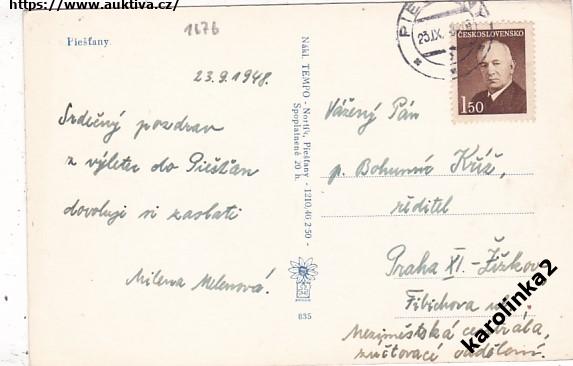 https://www.auktiva.cz/
1676
Piešťany
23.9.1948.
Srdečný pozdrav
z výletu do Piešťan
dovoluji si zaslati
Milena Melenová!
Nákl. TEMPO - Piešťany - 1210,46 2·50 -
Spoplatnené 20 h.
635
PIE
23.IX.
ČESKOSLOVENSKO
1 50
Vážený Pán
p. Bohumír Kříž,
ředitel
Praha XI. - Žižkov
Fibichova
Meziměstská centrála,
zúčtovací oddělení.
karolinka2